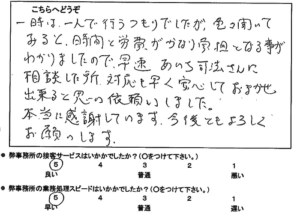 こちらへどうぞ
一時は、一人で行うつもりでしたが、色々聞いて
みると、時間と労費がかなり負担となる事が
わかりましたので、早速、あいち司法さんに
相談した所、対応も早く安心しておまかせ
出来ると思い依頼いしました。
本当に感謝しています。今後ともよろしく
お願いします。
● 弊事務所の接客サービスはいかがでしたか？（○をつけて下さい。）
5 4 3 2 1
良い 普通 悪い
● 弊事務所の業務処理スピードはいかがでしたか？（○をつけて下さい。）
5 4 3 2 1
早い 普通 遅い